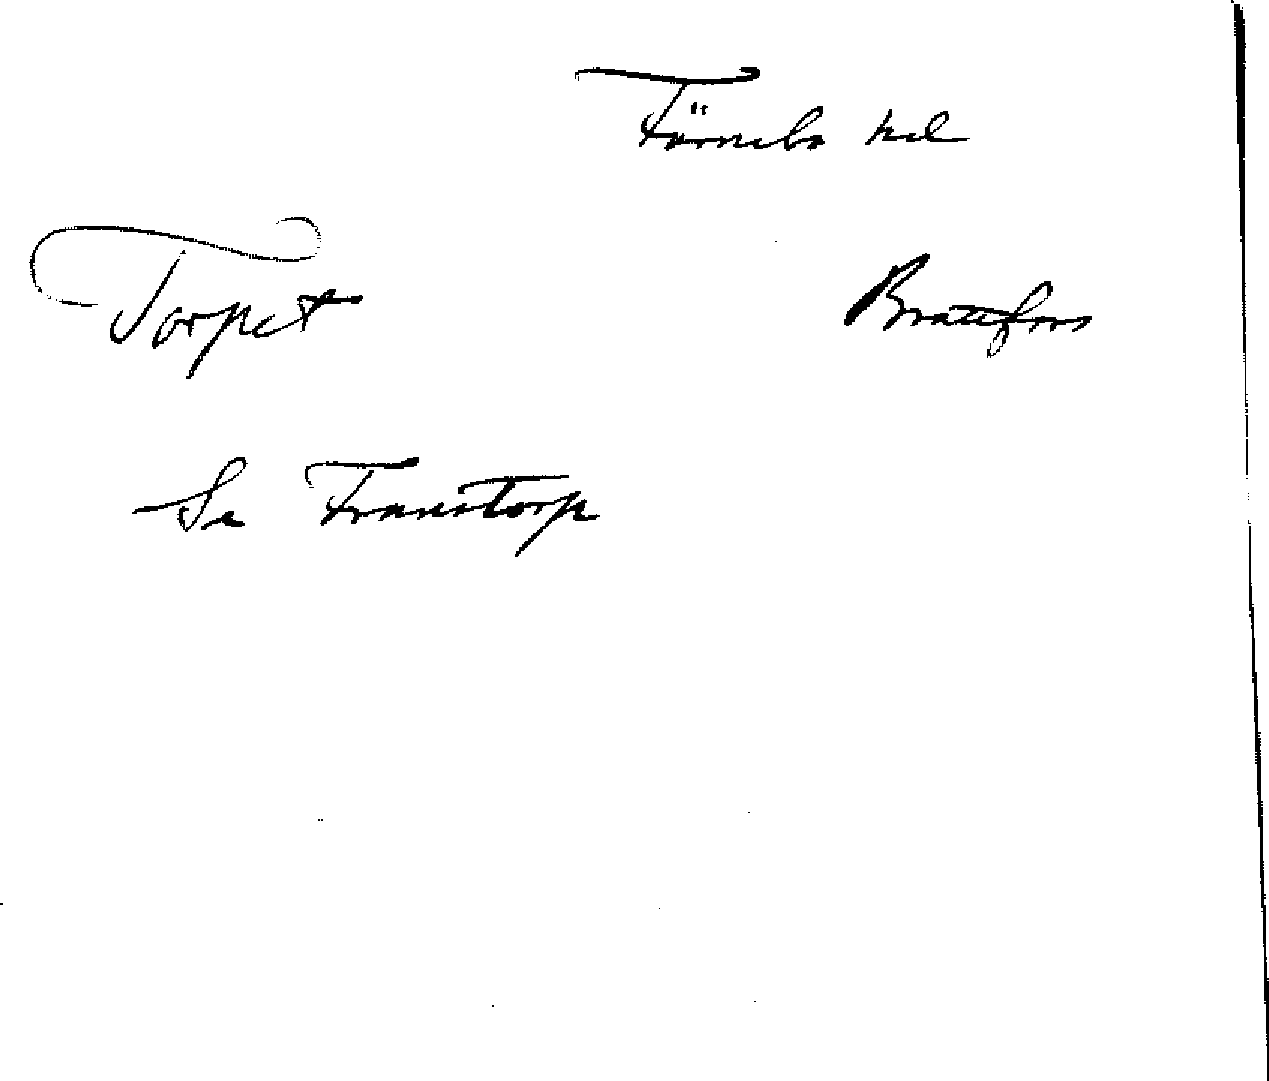 Färnebo hd
Torpet
Brattfors
Se Franstorp